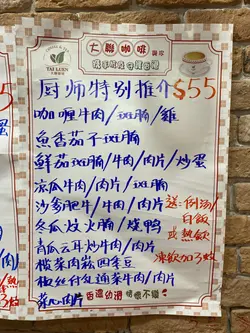 TAI LUEN
大聯咖啡 餐廳
厨师特別推介$55
咖喱牛肉/斑腩/雞
魚香茄子斑腩
鮮茄斑腩/牛肉/肉片/炒蛋
凉瓜牛肉/肉片/斑腩
沙爹肥牛/牛肉/肉片
冬瓜炆火腩/燒鴨
青瓜云耳炒牛肉/肉片
欖菜肉崧四季豆
椒丝付乳通菜牛肉/肉片
菜心肉片
送:例湯/
白飯
或熱飲
凍飲加3蚊
香濃幼滑